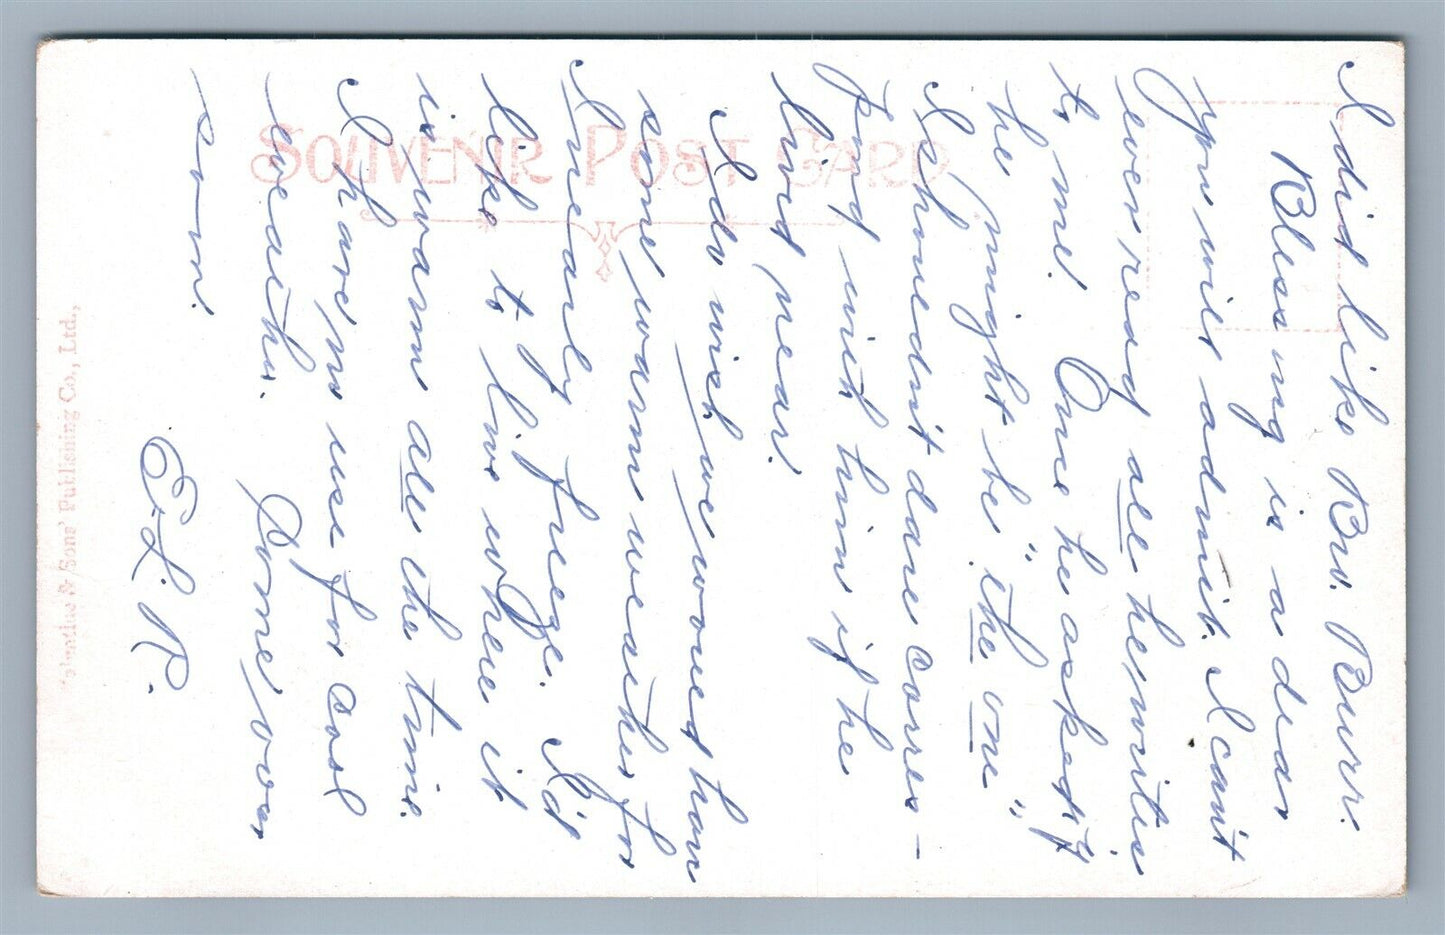 I did like Bro. Burr.
Blessing is a dear
you will admit. I can't
ever read all he writes
to me. Once he asked if
he might be "the one"
I shouldn't dare corres-
pond with him if he
lived near.
I do wish we would have
some warm weather for
I nearly freeze. I'd
like to live where it
is warm all the time.
I have no use for cool
weather. Come over
soon.
E. L. R.
SOUVENIR POST CARD
Valentine & Sons' Publishing Co., Ltd.,